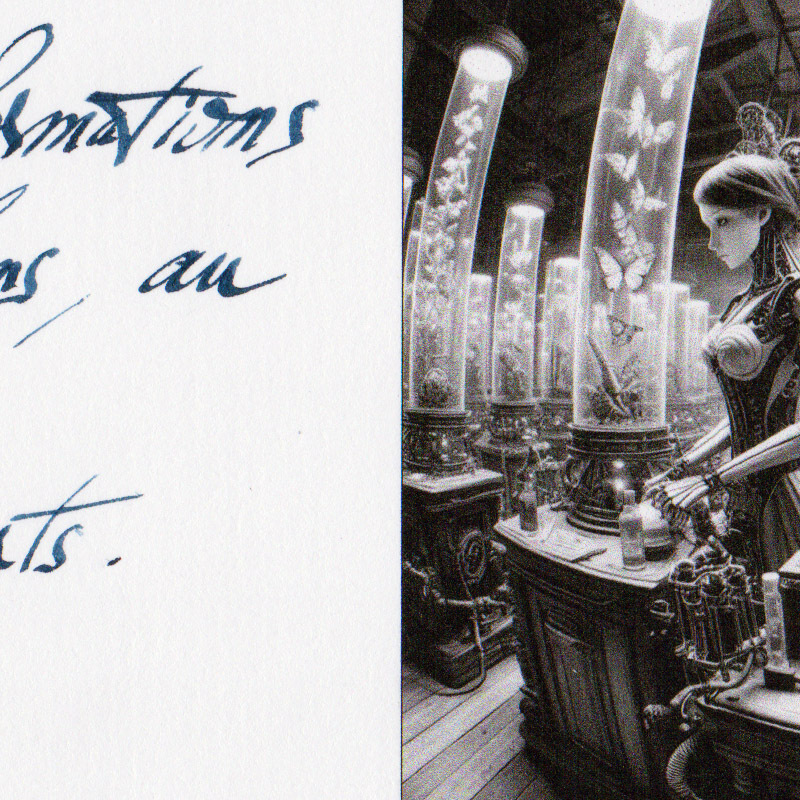 rmations
ns, au
ts.